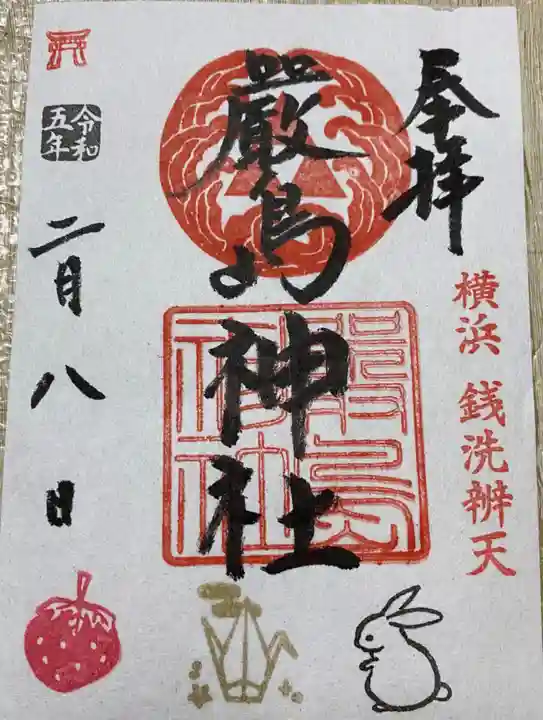 奉拝
横浜 銭洗辨天
嚴島神社
嚴島
神社
令和
五年
二月八日